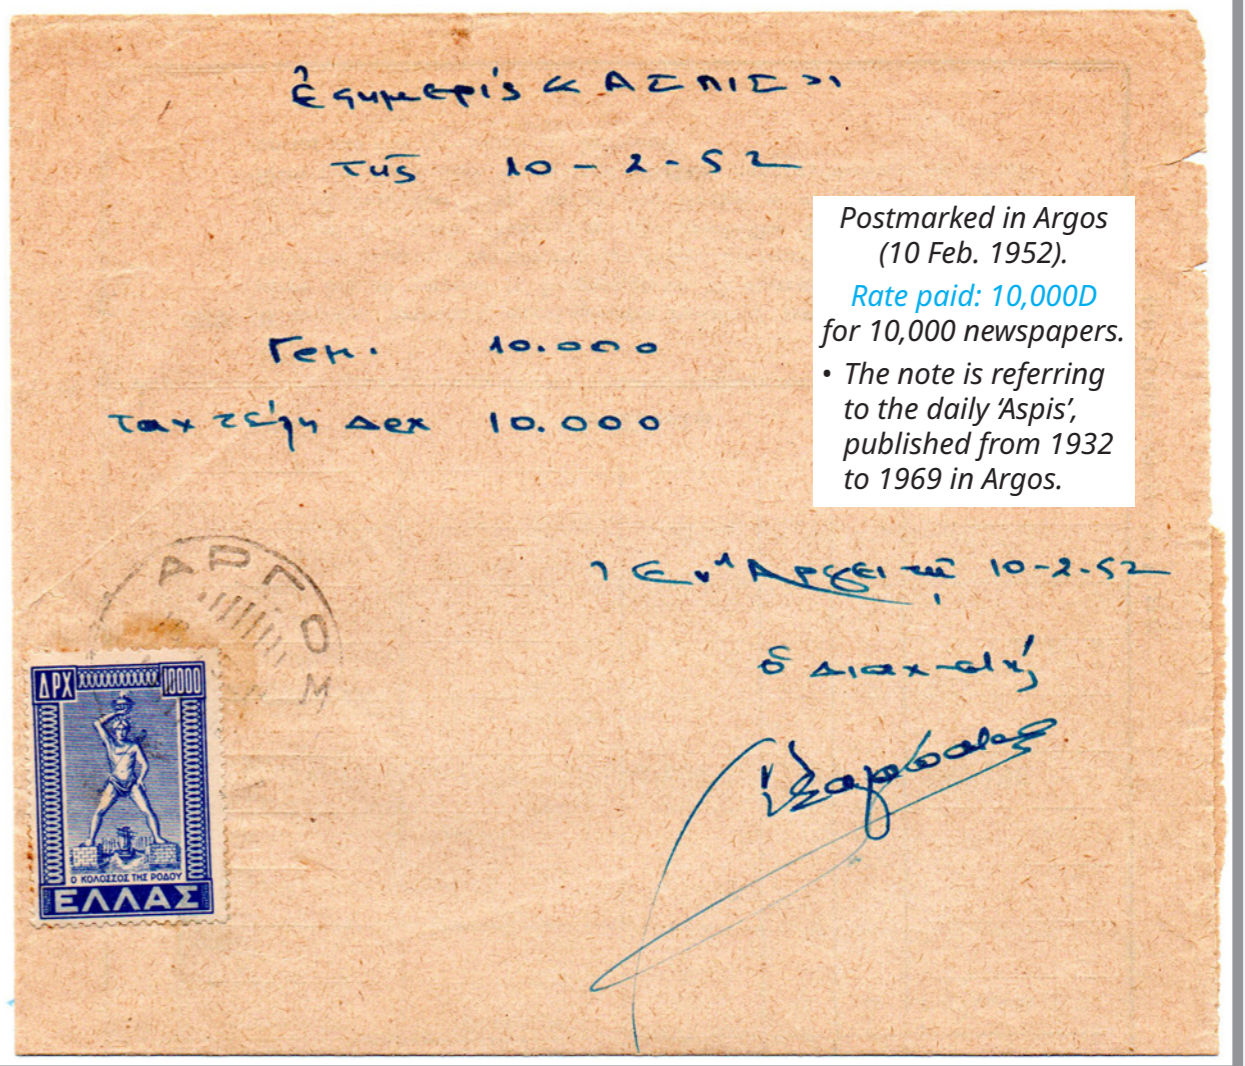 Ἐφημερίς « ΑΣΠΙΣ »
τῆς 10-2-52
Postmarked in Argos
(10 Feb. 1952).
Rate paid: 10,000D
for 10,000 newspapers.
• The note is referring
to the daily ‘Aspis’,
published from 1932
to 1969 in Argos.
10.000
Ταχ τέλη Δρχ 10.000
Ἐν Ἄργει τῇ 10-2-52
ὁ
ΑΡΓΟ
Μ
ΔΡΧ 10000
Ο ΚΟΛΟΣΣΟΣ ΤΗΣ ΡΟΔΟΥ
ΕΛΛΑΣ